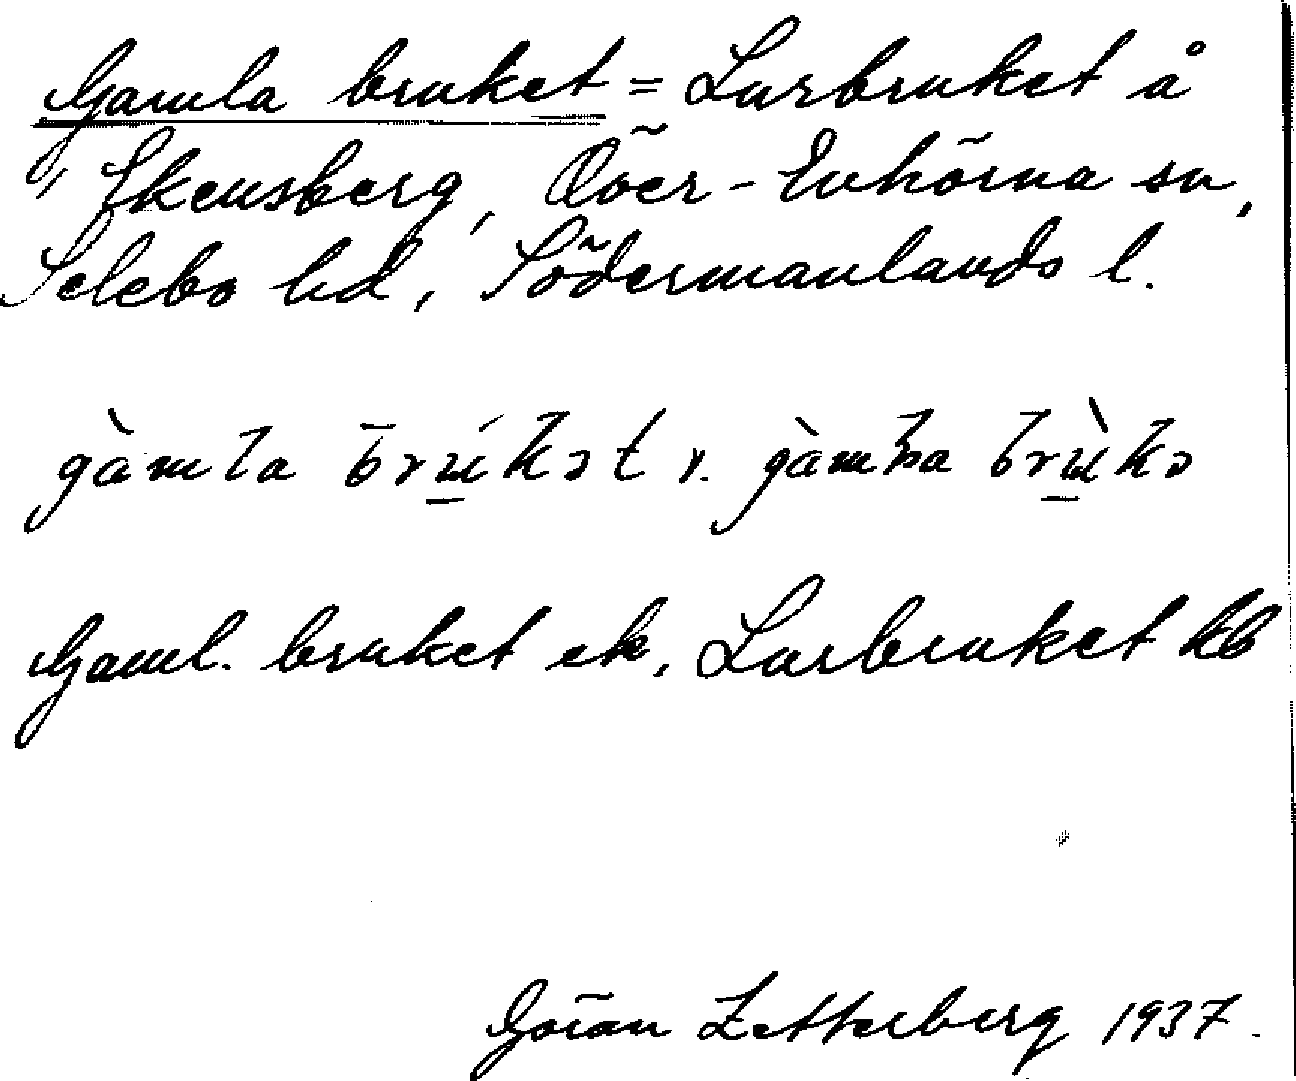 Gamla bruket = Lurbruket å
Ekensberg, Över-Enhörna sn,
Selebo hd, Södermanlands l.
gàmla brúkət r. gàmba brùkə
Gaml. bruket ek, Lurbruket kb
Göran Zetterberg 1937.